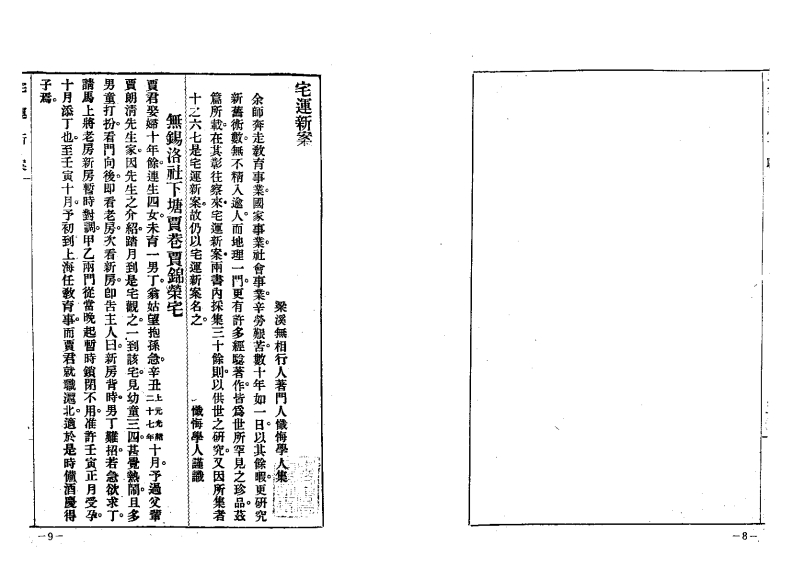 宅運新案
梁溪無相行人著門人懺悔學人集
余師奔走敎育事業。國家事業。社會事業。辛勞艱苦。數十年如一日。以其餘暇。更研究
新舊術數。無不精入逾人。而地理一門。更有許多經驗著作。皆爲世所罕見之珍品。茲
篇所載。在其彰往察來。宅運新案。兩書內採集三十餘則。以供世之研究。又因所集者
十之六七是宅運新案。故仍以宅運新案名之。
懺悔學人謹識
無錫洛社下塘賈巷賈錦榮宅
賈君娶婦十年餘。連生四女。未育一男丁。翁姑望抱孫急。辛丑上元光緒二十七年十月。予過父輩
賈朗清先生家。因先生之介紹。踏月到是宅觀之。一到該宅。見幼童三四。甚覺熱鬧。且多
男童打扮。看門向後。卽看老房。次看新房。卽告主人曰。新房背時。男丁難招。若急欲求丁。
請馬上將老房新房暫時對調。甲乙兩門。從當晚起暫時鎖閉不用。準許壬寅正月受孕。
十月添丁也。至壬寅十月。予初到上海任敎育事。而賈君就職滬北。適於是時備酒慶得
子焉。
宅運新案
—9—
—8—